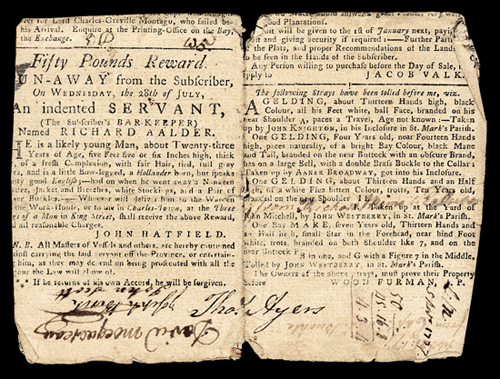 for Lord Charles-Greville Montagu, who sailed be-
his Arrival. Enquire at the Printing-Office on the Bay,
the Exchange.
Fifty Pounds Reward.
UN-AWAY from the Subscriber,
On WEDNESDAY, the 28th of JULY,
An indented SERVANT,
(The Subscriber's BAR-KEEPER)
Named RICHARD AALDER.
HE is a likely young Man, about Twenty-three
Years of Age, five Feet five or six Inches high, thick
of a fresh Complexion, with fair Hair, red, full grey
es, and is a little Bow-legged, a Hollander born, but speaks
good English
had on when he went away a Nineteen
Jacket and Breeches, white Stockings, and a Pair of
ver Buckles.
Whoever will deliver him to the Warden
the Work-House, or to me in Charles-Town, at the Three
s of a Man in King Street, shall receive the above Reward,
all reasonable Charges.
JOHN HATFIELD.
N. B. All Masters of Vessels and others, are hereby cautioned
inst carrying the said Servant off the Province, or entertain-
him, as they may depend on being prosecuted with all the
our the Law will allow of.
If he returns of his own Accord, he will be forgiven.
Thos. Ayers
good Plantations.
will be given to the 1st of January next, payi
st and giving security if required :— Further Parti
the Plats, and proper Recommendations of the Land
to be seen in the Hands of the Subscriber.
Any Person willing to purchase before the Day of Sale,
apply to JACOB VALK.
The following Strays have been tolled before me, viz.
A GELDING, about Thirteen Hands high, black
Colour, all his Feet white, bald Face, branded on his
near Shoulder A, paces a Travel, Age not known :—Taken
up by JOHN KNIGHTON, in his Inclosure in St. Mark's Parish.
One GELDING, Four Years old, near Fourteen Hands
high, paces naturally, of a bright Bay Colour, black Mane
and Tail, branded on the near Buttock with an obscure Brand,
has on a large Bell, with a double Brass Buckle to the Collar :
Taken up by ABNER BROADWAY, got into his Inclosure.
One GELDING, about Thirteen Hands and an Half
high, of a Flea bitten Colour, trotts, Ten Years old,
Taken up at the Yard of
John Mitchell, by JOHN WESTBERRY, in St. Mark's Parish.
One Bay MARE, seven Years old, Thirteen Hands and
an Half high, small Star in the Forehead, near hind Foot
white, trots, branded on both Shoulder like 7, and on the
near Buttock
B in one, and G with a Figure 7 in the Middle,
Tolled by JOHN WESTBERRY, in St. Mark's Parish.
The Owners of the above Strays, must prove their Property
before WOOD FURMAN, J. P.